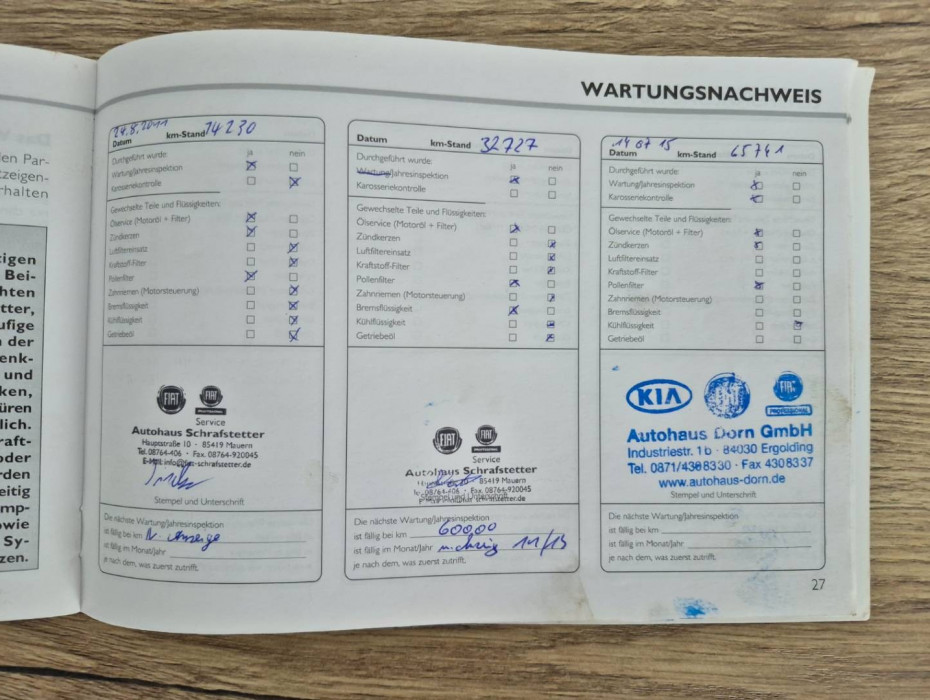 WARTUNGSNACHWEIS
len Par-
tzeigen-
rhalten
tigen
Bei-
hten
tter,
ufige
n der
enk-
und
ken,
üren
lich.
raft-
oder
rden
eitig
mp-
owie
Sy-
zen.
24.8.2011 74230
Datum km-Stand
Durchgeführt wurde: ja nein
Wartung/Jahresinspektion
Karosseriekontrolle
Gewechselte Teile und Flüssigkeiten:
Ölservice (Motoröl + Filter)
Zündkerzen
Luftfiltereinsatz
Kraftstoff-Filter
Pollenfilter
Zahnriemen (Motorsteuerung)
Bremsflüssigkeit
Kühlflüssigkeit
Getriebeöl
FIAT FIAT
PROFESSIONAL
Service
Autohaus Schrafstetter
Hauptstraße 10 · 85419 Mauern
Tel. 08764-406 · Fax. 08764-920045
E-Mail: info@fiat-schrafstetter.de
Stempel und Unterschrift
Die nächste Wartung/Jahresinspektion
ist fällig bei km N. Anzeige
ist fällig im Monat/Jahr
je nach dem, was zuerst zutrifft.
Datum km-Stand 32727
Durchgeführt wurde: ja nein
Wartung/Jahresinspektion
Karosseriekontrolle
Gewechselte Teile und Flüssigkeiten:
Ölservice (Motoröl + Filter)
Zündkerzen
Luftfiltereinsatz
Kraftstoff-Filter
Pollenfilter
Zahnriemen (Motorsteuerung)
Bremsflüssigkeit
Kühlflüssigkeit
Getriebeöl
FIAT FIAT
PROFESSIONAL
Service
Autohaus Schrafstetter
85419 Mauern
08764-406 · Fax. 08764-920045
Stempel und Unterschrift
Die nächste Wartung/Jahresinspektion
ist fällig bei km 60000
ist fällig im Monat/Jahr 11/13
je nach dem, was zuerst zutrifft.
14 07 15
Datum km-Stand 65741
Durchgeführt wurde: ja nein
Wartung/Jahresinspektion
Karosseriekontrolle
Gewechselte Teile und Flüssigkeiten:
Ölservice (Motoröl + Filter)
Zündkerzen
Luftfiltereinsatz
Kraftstoff-Filter
Pollenfilter
Zahnriemen (Motorsteuerung)
Bremsflüssigkeit
Kühlflüssigkeit
Getriebeöl
KIA FIAT
PROFESSIONAL
Autohaus Dorn GmbH
Industriestr. 16 · 84030 Ergolding
Tel. 0871/4308330 · Fax 4308337
www.autohaus-dorn.de
Stempel und Unterschrift
Die nächste Wartung/Jahresinspektion
ist fällig bei km
ist fällig im Monat/Jahr
je nach dem, was zuerst zutrifft.
27